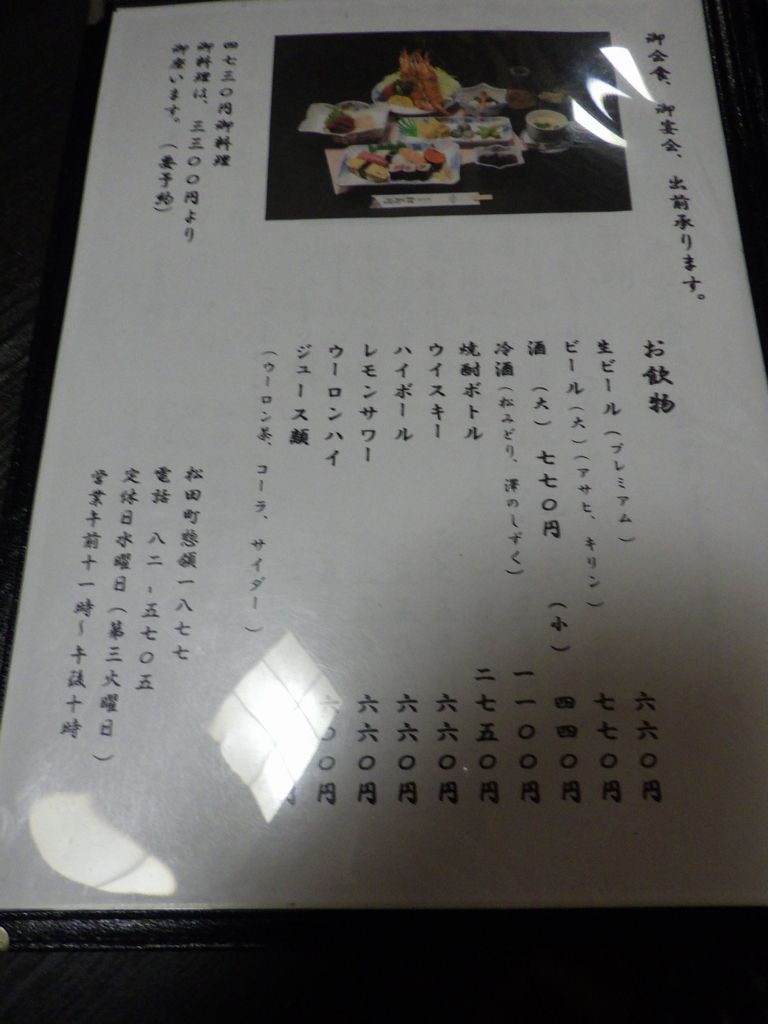 御会食、御宴会、出前承ります。
四七三〇円御料理
御料理は、三三〇〇円より
御座います。(要予約)
お飲物
生ビール(プレミアム) 六六〇円
ビール(大)(アサヒ、キリン) 七七〇円
酒 (大) 七七〇円 (小) 四四〇円
冷酒(松みどり、澤のしずく) 一一〇〇円
焼酎ボトル 二七五〇円
ウイスキー 六六〇円
ハイボール 六六〇円
レモンサワー 六六〇円
ウーロンハイ 円
ジュース類 円
(ウーロン茶、コーラ、サイダー)
松田町惣領一八七七
電話 八二-五七〇五
定休日水曜日(第三火曜日)
営業午前十一時~午後十時